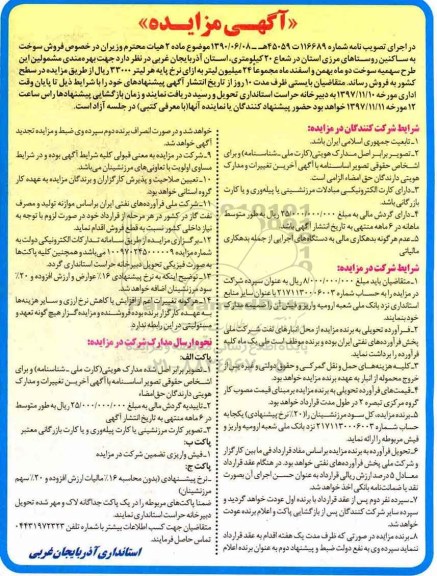 «آگهی مزایده»
در اجرای تصویب نامه شماره ۱۱۶۶۸۹/ت ۴۵۰۵۹هـ -۱۳۹۰/۰۶/۰۸ موضوع ماده ۲ هیات محترم وزیران در خصوص فروش سوخت
به ساکنین روستاهای مرزی استان در شعاع ۲۰ کیلومتری، استان آذربایجان غربی در نظر دارد جهت بهره‌مندی مشمولین این
طرح سهمیه سوخت دو ماه بهمن و اسفند ماه مجموعا ۲۴ میلیون لیتر به ازای نرخ پایه هر لیتر ۳۳۰۰۰ ریال از طریق مزایده در سطح
کشور به فروش رساند. متقاضیان بایستی ظرف مدت ۱۰ روز از تاریخ انتشار آگهی پیشنهادهای خود را با شرایط ذیل تا پایان وقت
اداری مورخه ۱۳۹۷/۱۱/۱۰ به دبیرخانه حراست استانداری تحویل و رسید دریافت نمایند و زمان بازگشایی پیشنهادها راس ساعت
۱۲ مورخه ۱۳۹۷/۱۱/۱۱ خواهد بود حضور پیشنهاد کنندگان یا نماینده آنها (با معرفی کتبی) در جلسه آزاد است.
شرایط شرکت کنندگان در مزایده:
۱-تابعیت جمهوری اسلامی ایران باشد.
۲-تصویر برابر اصل مدارک هویتی (کارت ملی_شناسنامه) و برای
اشخاص حقوقی تصویر اساسنامه با آگهی آخرین تغییرات و مدارک
هویتی دارندگان حق امضاء الزامی است.
۳-دارای کارت الکترونیکی مبادلات مرزنشینی یا پیله‌وری و یا کارت
بازرگانی باشد.
۴-دارای گردش مالی به مبلغ ۲۵/۰۰۰/۰۰۰/۰۰۰ ریال به طور متوسط
ماهانه در ۶ ماهه منتهی به تاریخ انتشار آگهی باشد.
۵-عدم هرگونه بدهکاری مالی به دستگاههای اجرایی از جمله بدهکاری
مالیاتی
شرایط شرکت در مزایده:
۱-متقاضیان باید مبلغ ۸/۰۰۰/۰۰۰/۰۰۰ ریال به عنوان سپرده شرکت
در مزایده را به حساب شماره ۲۱۷۱۱۳۰۰۰۶۰۰۳ با عنوان سایر منابع
استانداری نزد بانک ملی شعبه ارومیه واریز و فیش آن را ضمیمه مدارک
خود بنمایند.
۲-فرآورده تحویلی به برنده مزایده از محل انبارهای نفت شرکت ملی
پخش فرآورده‌های نفتی ایران بوده و برنده موظف است طی یک ماه کلیه
فرآورده را برداشت نماید.
۳-کلیه هزینه‌های حمل و نقل گمرکی و حقوق دولتی و غیره پس از
خروج محموله از انبار به عهده برنده مزایده خواهد بود.
۴-قیمت‌های فرآورده تحویلی به برنده مزایده برمبنای قیمت مصوب کار
گروه مرکزی تبصره ۲ در طول مدت قرارداد خواهد بود.
۵-برنده مزایده، کل سود مرزنشینان را (۲۰٪ نرخ پیشنهادی) یکجا به
حساب شماره ۲۱۷۱۱۳۰۰۰۶۰۰۳ نزد بانک ملی شعبه ارومیه واریز و
فیش مربوطه را ارائه نماید.
۶-تحویل فرآورده به برنده مزایده بر اساس مفاد قراردادی فی مابین کارگزار
و شرکت ملی پخش فرآورده‌های نفتی خواهد بود. در هنگام عقد قرارداد
معادل ۵ درصد ارزش ریالی قرارداد به عنوان حسن اجرای آن بصورت
نقد یا ضمانت‌نامه بانکی اخذ خواهد شد.
۷-سپرده نفر دوم پس از عقد قرارداد با برنده اول عودت خواهد گردید و
سپرده سایر شرکت کنندگان پس از بازگشایی پاکت و اعلام برنده عودت
خواهد شد.
۸-برنده مزایده در صورتی که ظرف مدت یک هفته اقدام به عقد قرارداد
ننماید سپرده وی به نفع دولت ضبط و پیشنهاد دوم به عنوان برنده اعلام
خواهد شد و در صورت انصراف برنده دوم سپرده وی ضبط و مزایده تجدید
آگهی خواهد شد.
۹-شرکت در مزایده به معنی قبولی کلیه شرایط آگهی بوده و در شرایط
مساوی اولویت با تعاونی‌های مرزنشینان می‌باشد.
۱۰-تعیین صلاحیت و پذیرش کارگزاران و برندگان مزایده به عهده کار
گروه استانی خواهد بود.
۱۱-شرکت ملی فرآورده‌های نفتی ایران براساس موازنه تولید و مصرف
نفت گاز در کشور در هر مرحله از قرارداد خود در صورت لزوم با توجه به
نیاز داخلی کشور نسبت به قطع فروش اقدام نماید.
۱۲-برگزاری مزایده از طریق سامانه تدارکات الکترونیکی دولت به
شماره مزایده ۱۰۰۹۷۰۲۴۵۰۰۰۰۰۹ می‌باشد و همچنین کلیه پاکت‌ها
به صورت فیزیکی تحویل دبیرخانه حراست استانداری گردد.
۱۳-توضیح اینکه به نرخ پیشنهادی ۱۶٪ عوارض و ارزش افزوده و ۲۰٪
سود مرزنشینان اضافه خواهد شد.
۱۴-هرگونه تغییرات اعم از افزایش یا کاهش نرخ ارزی و سایر هزینه‌ها
به عهده کارگزار برنده بوده و فروشنده و مزایده گزار هیچ گونه تعهد و
مسئولیتی در این رابطه ندارد.
نحوه ارسال مدارک شرکت در مزایده:
پاکت الف:
۱-تصویر برابر اصل شده مدارک هویتی (کارت ملی_شناسنامه) و برای
اشخاص حقوقی تصویر اساسنامه با آگهی آخرین تغییرات و مدارک
هویتی دارندگان حق امضاء
۲-تائیدیه گردش مالی به مبلغ ۲۵/۰۰۰/۰۰۰/۰۰۰ ریال به طور متوسط
در ۶ ماهه منتهی به تاریخ انتشار آگهی
۳-تصویر کارت مرزنشینی یا کارت پیله‌وری و یا کارت بازرگانی معتبر
پاکت ب:
-فیش واریزی تضمین شرکت در مزایده
پاکت ج:
-نرخ پیشنهادی (بدون محاسبه ۱۶٪ مالیات ارزش افزوده و ۲۰٪ سهم
مرزنشینان)
ضمنا پاکت‌های مربوطه را در یک پاکت جداگانه لاک و مهر شده تحویل
دبیرخانه حراست استانداری نمایند.
متقاضیان جهت کسب اطلاعات بیشتر با شماره تلفن ۰۴۴۳۱۹۷۲۳۲۳
تماس حاصل فرمایند.
استانداری آذربایجان غربی